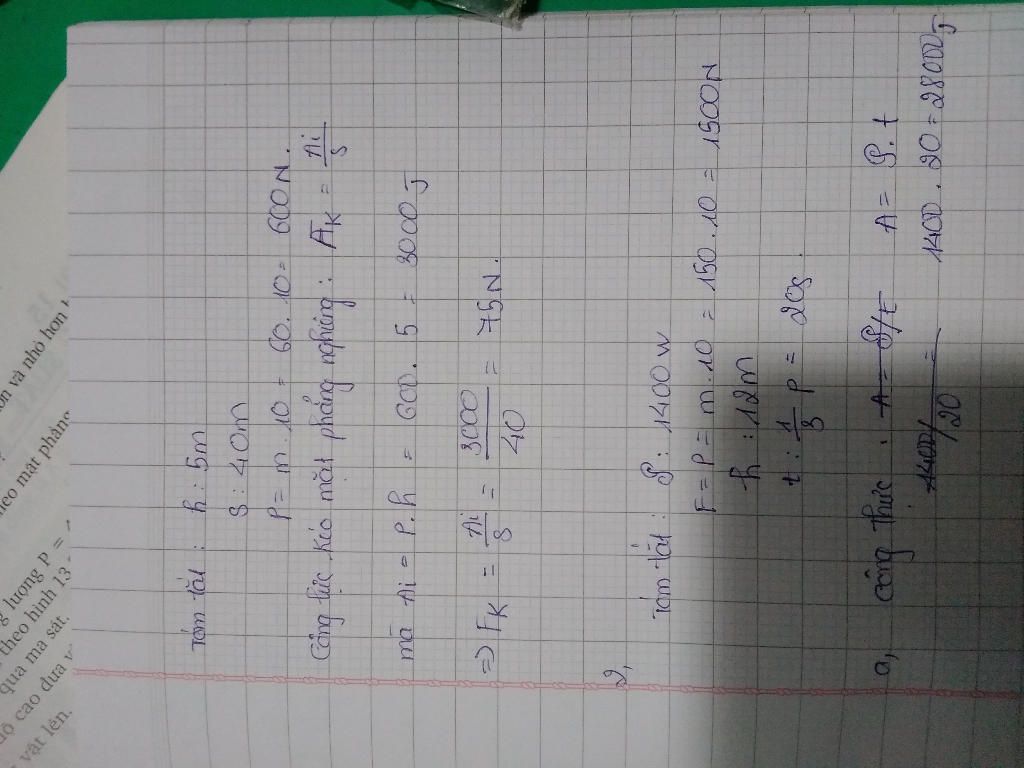 Tóm tắt : h : 5m
S : 40m
P = m . 10 = 60 . 10 = 600 N .
Công thức kéo mặt phẳng nghiêng : AK = Ai/s
mà Ai = P. h = 600 . 5 = 3000 J
=> FK = Ai/s = 3000/40 = 75 N .
2,
Tóm tắt : P : 1400 W
F = P = m . 10 = 150 . 10 = 1500 N
h : 12m
t : 1/3 P = 20s .
a, Công thức : A = P/t A = P. t
1400/20 = 1400 . 20 = 28000 J
ơn và nhỏ hơn
theo mặt phẳng
g lượng P =
theo hình 13
qua ma sát.
độ cao đưa v
vật lên.